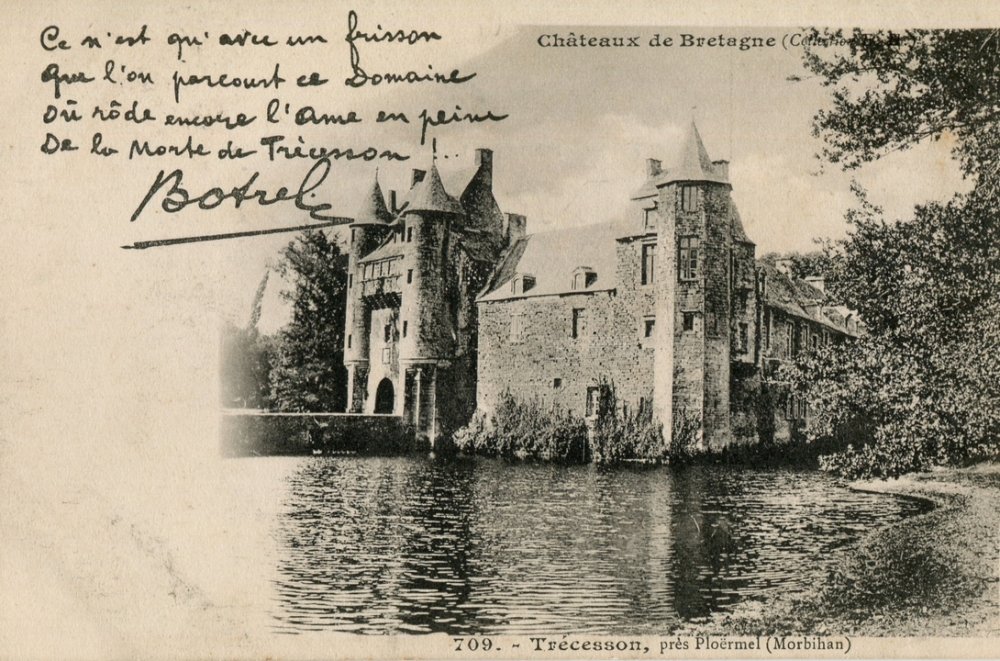 Ce n'est qu'avec un frisson
Que l'on parcourt ce Domaine
Où rôde encore l'Ame en peine
De la Morte de Trécesson...
Botrel
Châteaux de Bretagne (Collection
709. - Trécesson, près Ploërmel (Morbihan)